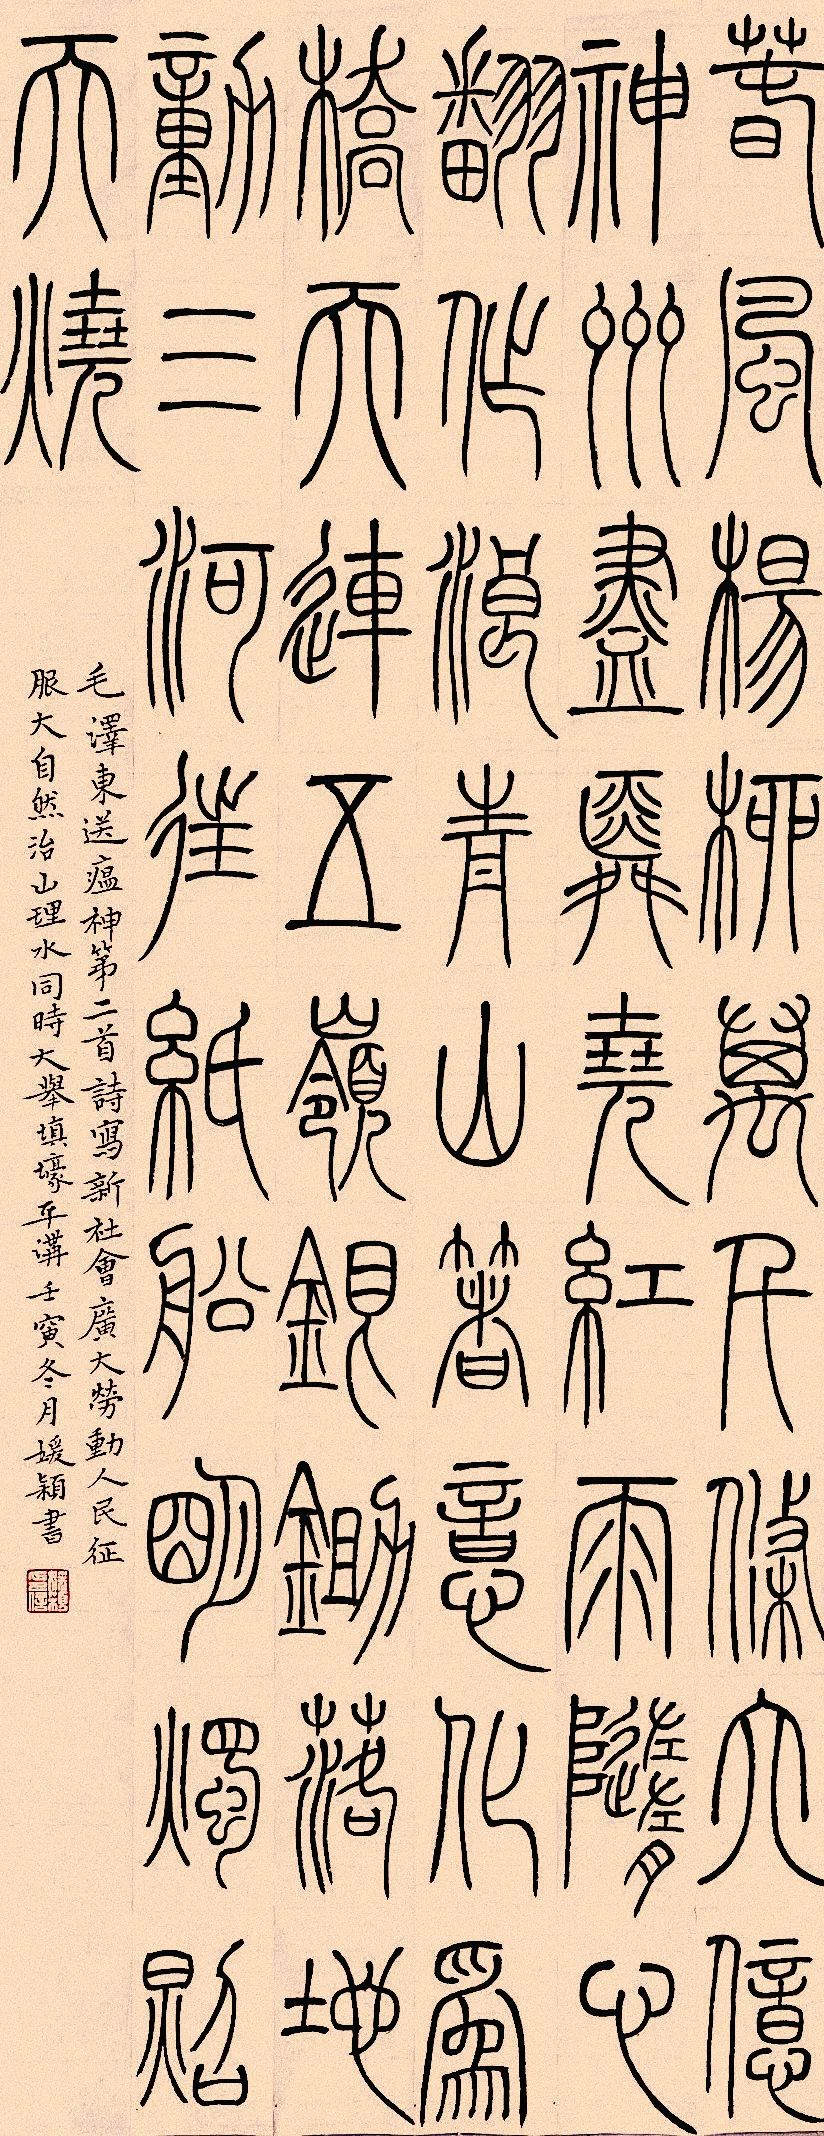 春風楊柳萬千條六億
神州盡舜堯紅雨隨心
翻作浪青山著意化爲
橋天連五嶺銀鋤落地
動三河往紙船明燭照
天燒
毛澤東送瘟神第二首詩寫新社會廣大勞動人民征
服大自然治山理水同時大舉填壕平溝壬寅冬月媛穎書